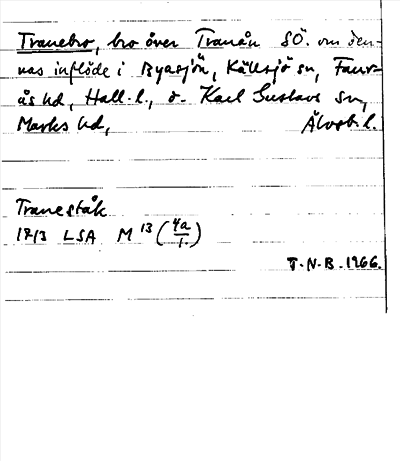 Tranebro, bro över Tranån SÖ. om den-
nas inflöde i Byasjön, Källsjö sn, Faur-
ås hd, Hall. l., o. Karl Gustavs sn,
Marks hd, Älvsb. l.
Traneståk
1713 LSA M 13 (4a/1.)
T.N.B. 1966.